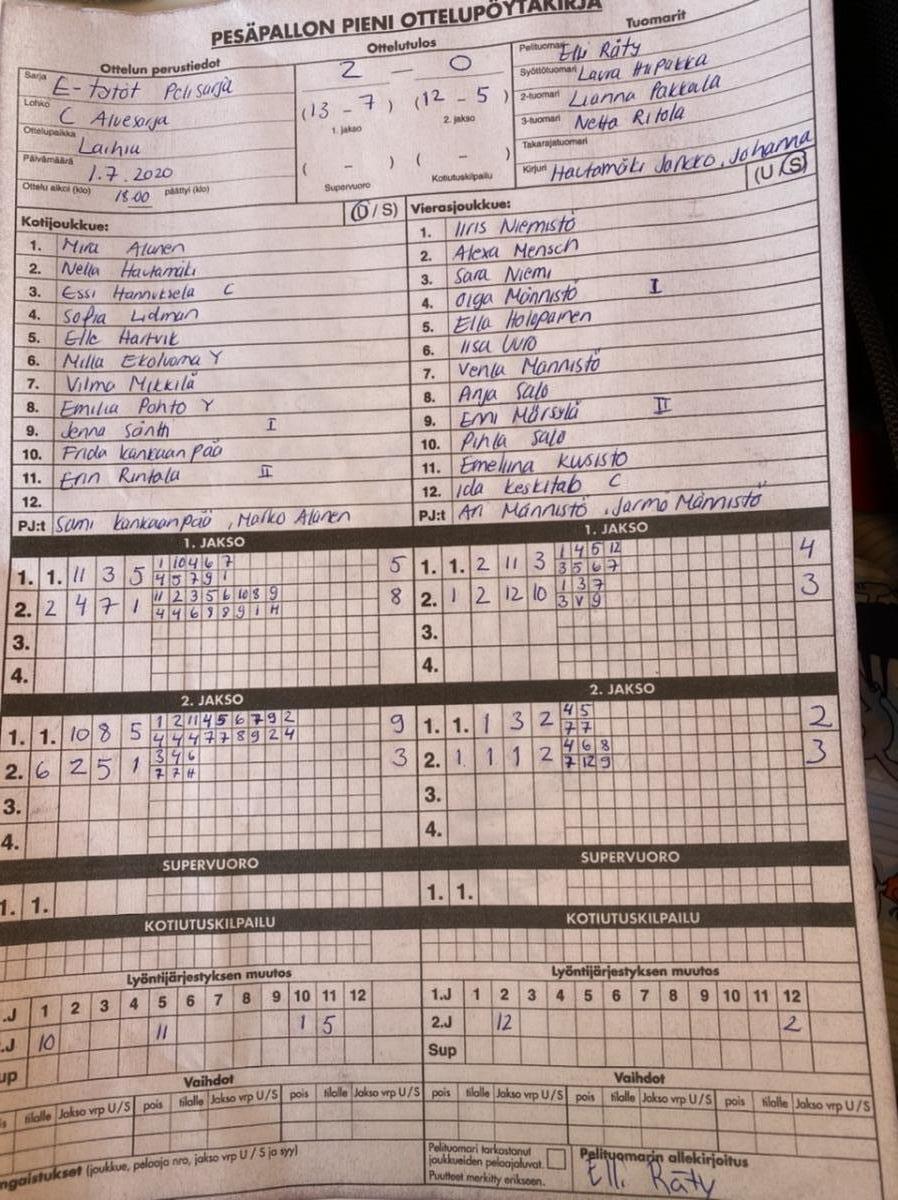 PESÄPALLON PIENI OTTELUPÖYTÄKIRJA
Ottelun perustiedot
Sarja E-tytöt Pelisarja
Lohko C Aluesarja
Ottelupaikka Laihia
Päivämäärä 1.7.2020
Ottelu alkoi (klo) 18.00 päättyi (klo)
Ottelutulos
2 - 0
(13 - 7) (12 - 5)
1. jakso 2. jakso
( - ) ( - )
Supervuoro Kotiutuskilpailu
Tuomarit
Pelituomari Elli Räty
Syöttötuomari Laura
2-tuomari Lianna Pakkala
3-tuomari Netta Ritola
Takarajatuomari
Kirjuri Hautamäki Jarkko, Johanna
Kotijoukkue: (U / S)
1. Mira Alanen
2. Nella Hautamäki
3. Essi Hannuksela C
4. Sofia Lidman
5. Elle Hartvik
6. Milla Ekoluoma Y
7. Vilma Mikkilä
8. Emilia Pohto Y
9. Jenna Sänth I
10. Frida Kankaanpää
11. Erin Rintala II
12.
PJ:t Sami Kankaanpää, Marko Alanen
Vierasjoukkue: (U / S)
1. Iiris Niemistö
2. Alexa Mensch
3. Sara Niemi
4. Olga Männistö I
5. Ella Holopainen
6. Iisa Uuro
7. Venla Männistö
8. Anja Salo
9. Emi Mörsylä II
10. Pihla Salo
11. Emeliina Kusisto
12. Ida Keskitalo C
PJ:t Ari Männistö, Jarmo Männistö
1. JAKSO
1. 1. 11 3 5 1 10 4 6 7 5
4 5 7 9 1
2. 2 4 7 1 11 2 3 5 6 10 8 9 8
4 4 6 8 8 9 1 H
3.
4.
1. JAKSO
1. 1. 2 11 3 1 4 5 12 4
3 5 6 7
2. 1 2 12 10 1 3 7 3
3 V 9
3.
4.
2. JAKSO
1. 1. 10 8 5 1 2 11 4 5 6 7 9 2 9
4 4 4 7 7 8 9 2 4
2. 6 2 5 1 3 4 6 3
7 7 H
3.
4.
2. JAKSO
1. 1. 1 3 2 4 5 2
7 7
2. 1 1 1 2 4 6 8 3
7 12 9
3.
4.
SUPERVUORO
1. 1.
SUPERVUORO
1. 1.
KOTIUTUSKILPAILU
KOTIUTUSKILPAILU
Lyöntijärjestyksen muutos
.J 1 2 3 4 5 6 7 8 9 10 11 12
.J 10 11 1 5
up
Lyöntijärjestyksen muutos
1.J 1 2 3 4 5 6 7 8 9 10 11 12
2.J 12 2
Sup
Vaihdot
is tilalle Jakso vrp U/S pois tilalle Jakso vrp U/S pois tilalle Jakso vrp U/S
Vaihdot
pois tilalle Jakso vrp U/S pois tilalle Jakso vrp U/S pois tilalle Jakso vrp U/S
ngaistukset (joukkue, pelaaja nro, jakso vrp U / S ja syy)
Pelituomari tarkastanut
joukkueiden pelaajaluvat.
Puutteet merkitty erikseen.
Pelituomarin allekirjoitus
Elli Räty